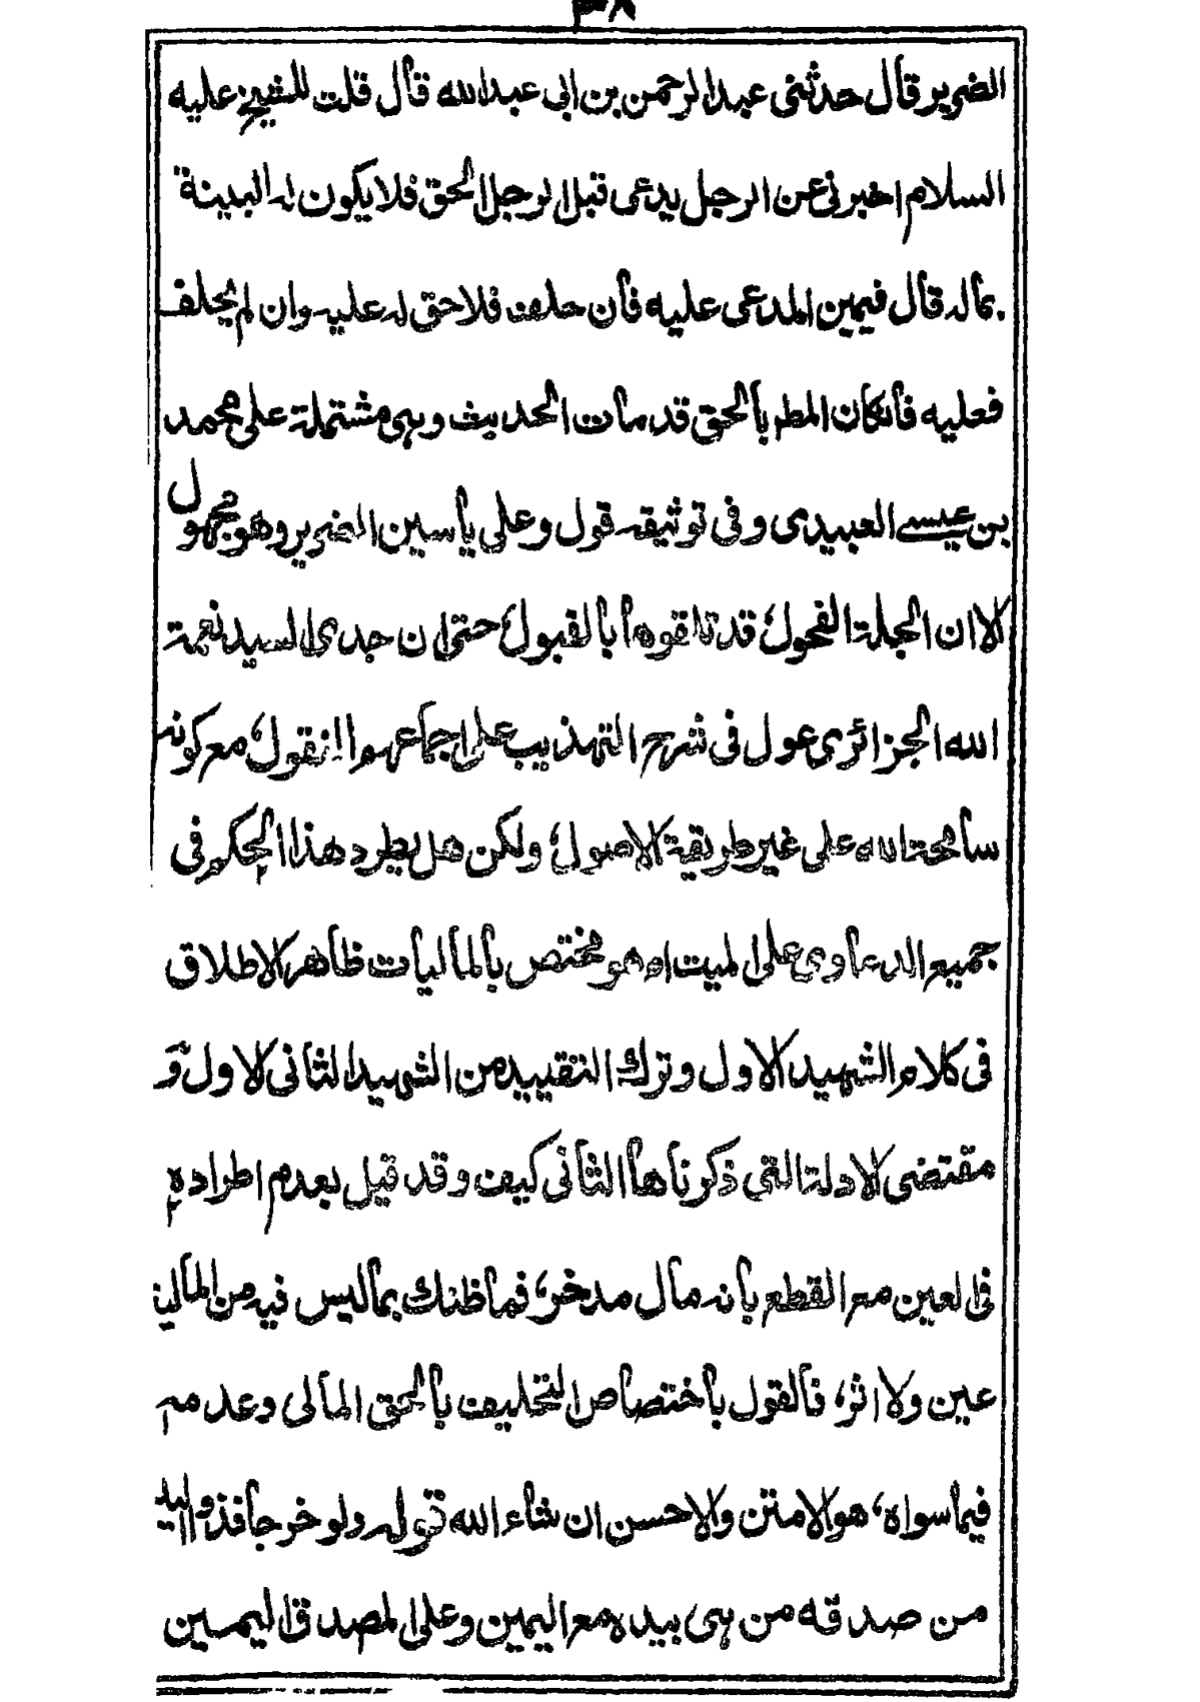 ٣٨
الضرير قال حدثنى عبد الرحمن بن ابى عبد الله قال قلت للشيخ عليه
السلام اخبرنى عن الرجل يدعى قبل الرجل الحق فلا يكون له البينة
بماله قال فيمين المدعى عليه فان حلف فلا حق له عليه وان لم يحلف
فعليه فانكان المط بالحق قد مات الحديث وهى مشتملة على محمد
بن عيسے العبيدى وفى توثيقه قول وعلى ياسين الضرير وهو مجهول
الا ان الجلة الفحول، قد تلقوها بالقبول، حتى ان جدى السيد نعمة
الله الجزائرى عول فى شرح التهذيب على اجماعهم المنقول، مع كونه
سامحه الله على غير طريقة الاصول، ولكن هل يطرد هذا الحكم فى
جميع الدعاوى على الميت او هو مختص بالماليات ظاهر الاطلاق
فى كلام الشهيد الاول وترك التقييد من الشهيد الثانى الاول و
مقتضى الادلة التى ذكرناها الثانى كيف وقد قيل بعدم اطراده
فى العين مع القطع بانه مال مدخر، فما ظنك بما ليس فيه من المالية
عين ولا اثر، فالقول باختصاص التحليف بالحق المالى وعدمه
فيما سواه، هو الامتن والاحسن ان شاء الله قوله ولو خرجا فذو اليد
من صدقه من هى بيده مع اليمين وعلى المصدق اليمين